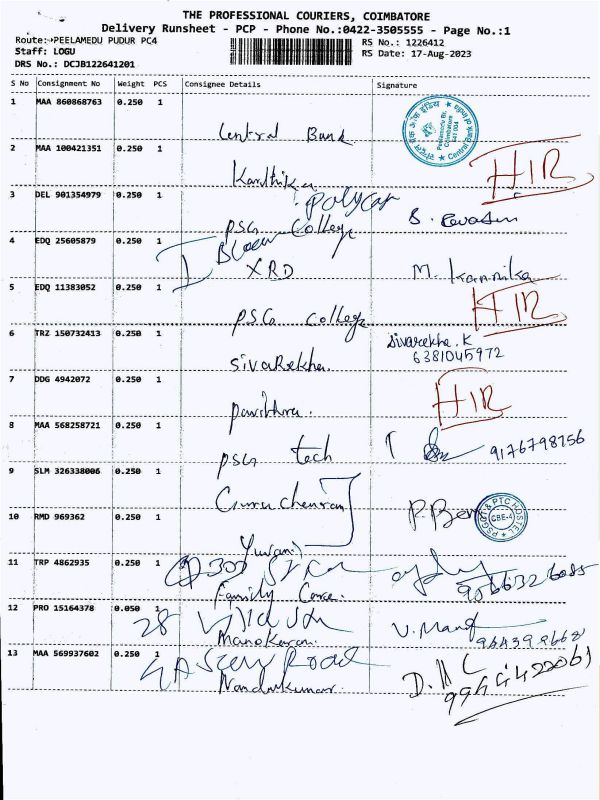 THE PROFESSIONAL COURIERS, COIMBATORE
Delivery Runsheet - PCP - Phone No.:0422-3505555 - Page No.:1
Route: PEELAMEDU PUDUR PC4
RS No.: 1226412
Staff: LOGU
RS Date: 17-Aug-2023
DRS No.: DCJB122641201
S No Consignment No Weight PCS Consignee Details Signature
1 MAA 860868763 0.250 1
Central Bank
2 MAA 100421351 0.250 1
HIR
Karthika
3 DEL 901354979 0.250 1
polycap
PSG College
4 EDQ 25605879 0.250 1
XRD
M. Kannika
5 EDQ 11383052 0.250 1
HIR
PSG College
6 TRZ 150732413 0.250 1
Sivarekha.K
6381045972
SivaRekha.
7 DDG 4942072 0.250 1
HIR
pavithra.
8 MAA 568258721 0.250 1
9176798156
PSG tech
9 SLM 326338006 0.250 1
10 RMD 969362 0.250 1
PSGCT & PTC HOSTEL
CBE-4
Yuvani
11 TRP 4862935 0.250 1
Family Care
12 PRO 15164378 0.050 1
28
Manokaran.
13 MAA 569937602 0.250 1
Road
Nandakumar.